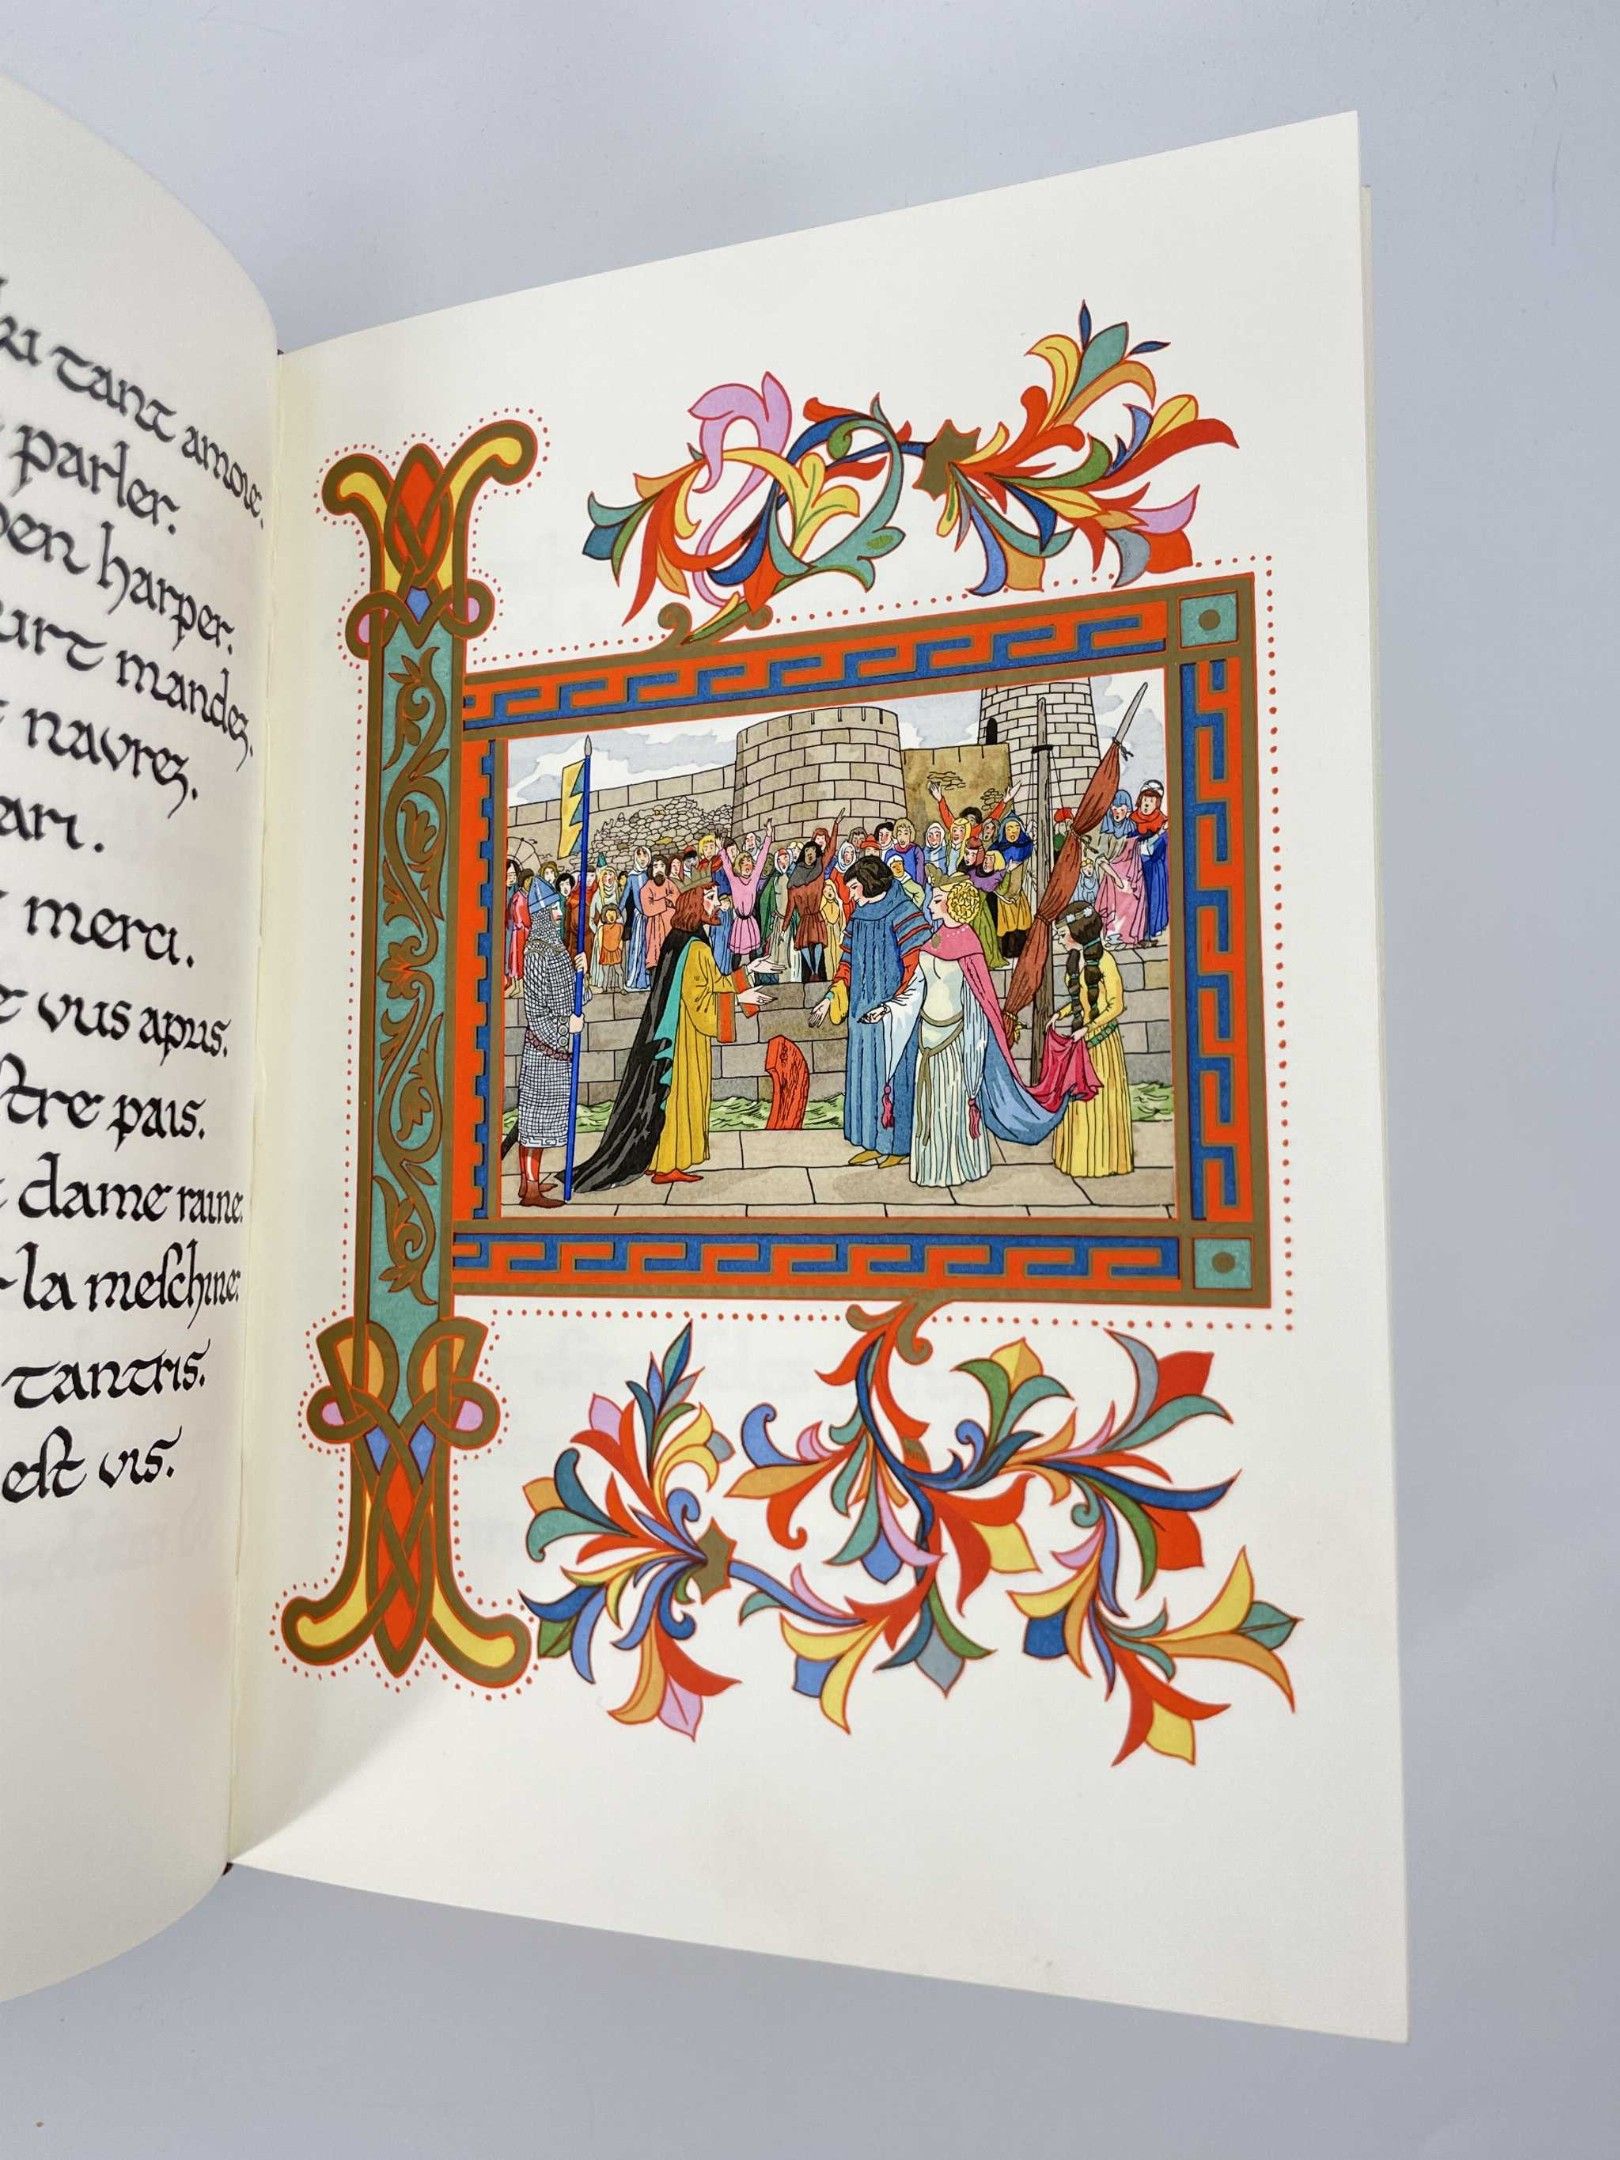 tant amour.
parler.
harper.
mandez.
navrez.
mari.
merci.
vus apris.
pais.
dame raine.
la meschine.
tantris.
est vis.